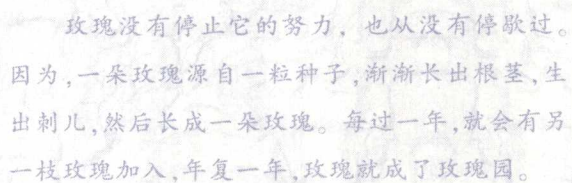 玫瑰没有停止它的努力，也从没有停歇过。
因为,一朵玫瑰源自一粒种子,渐渐长出根茎,生
出刺儿,然后长成一朵玫瑰。每过一年,就会有另
一枝玫瑰加入,年复一年,玫瑰就成了玫瑰园。